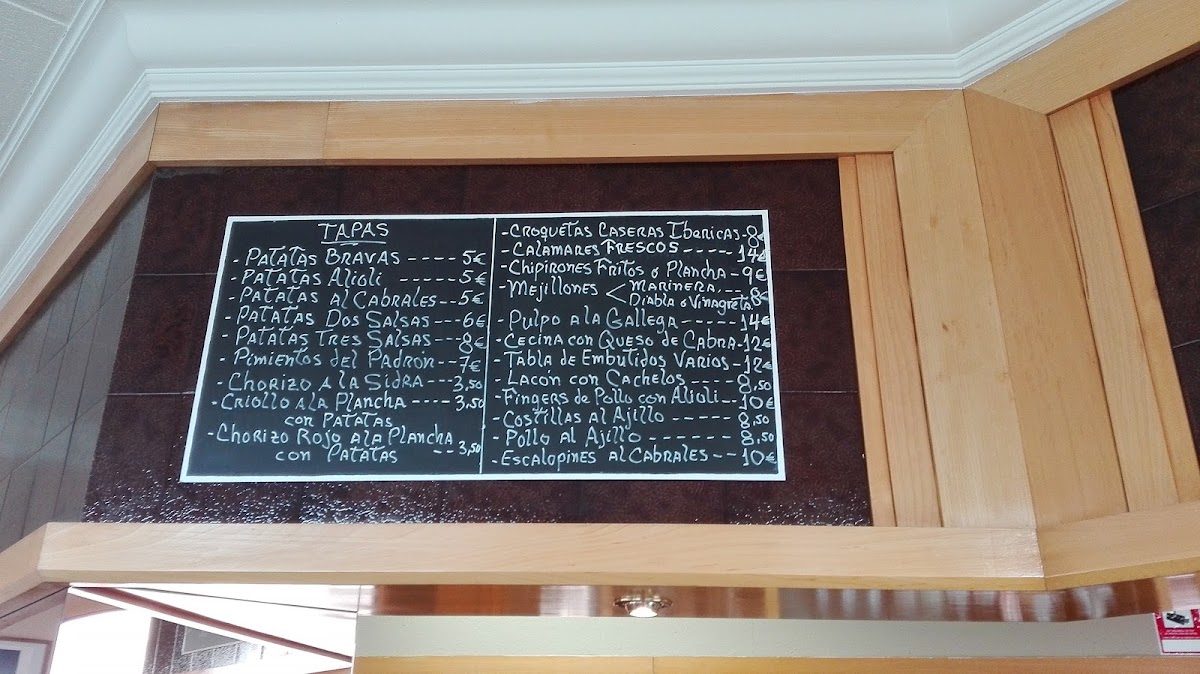 TAPAS
- PATATAS BRAVAS ---- 5€
- PATATAS ALIOLI ---- 5€
- PATATAS AL CABRALES -- 5€
- PATATAS DOS SALSAS --- 6€
- PATATAS TRES SALSAS --- 8€
- PIMIENTOS DEL PADRON -- 7€
- CHORIZO A LA SIDRA --- 3,50
- CRIOLLO A LA PLANCHA ---- 3,50
CON PATATAS
- CHORIZO ROJO A LA PLANCHA
CON PATATAS -- 3,50
- CROQUETAS CASERAS IBERICAS - 8€
- CALAMARES FRESCOS ---- 14€
- CHIPIRONES FRITOS O PLANCHA - 9€
- MEJILLONES < MARINERA, --- 8€
DIABLA O VINAGRETA
- PULPO A LA GALLEGA ----- 14€
- CECINA CON QUESO DE CABRA - 12€
- TABLA DE EMBUTIDOS VARIOS - 12€
- LACÓN CON CACHELOS --- 8,50
- FINGERS DE POLLO CON ALIOLI -- 10€
- COSTILLAS AL AJILLO ----- 8,50
- POLLO AL AJILLO ------ 8,50
- ESCALOPINES AL CABRALES -- 10€